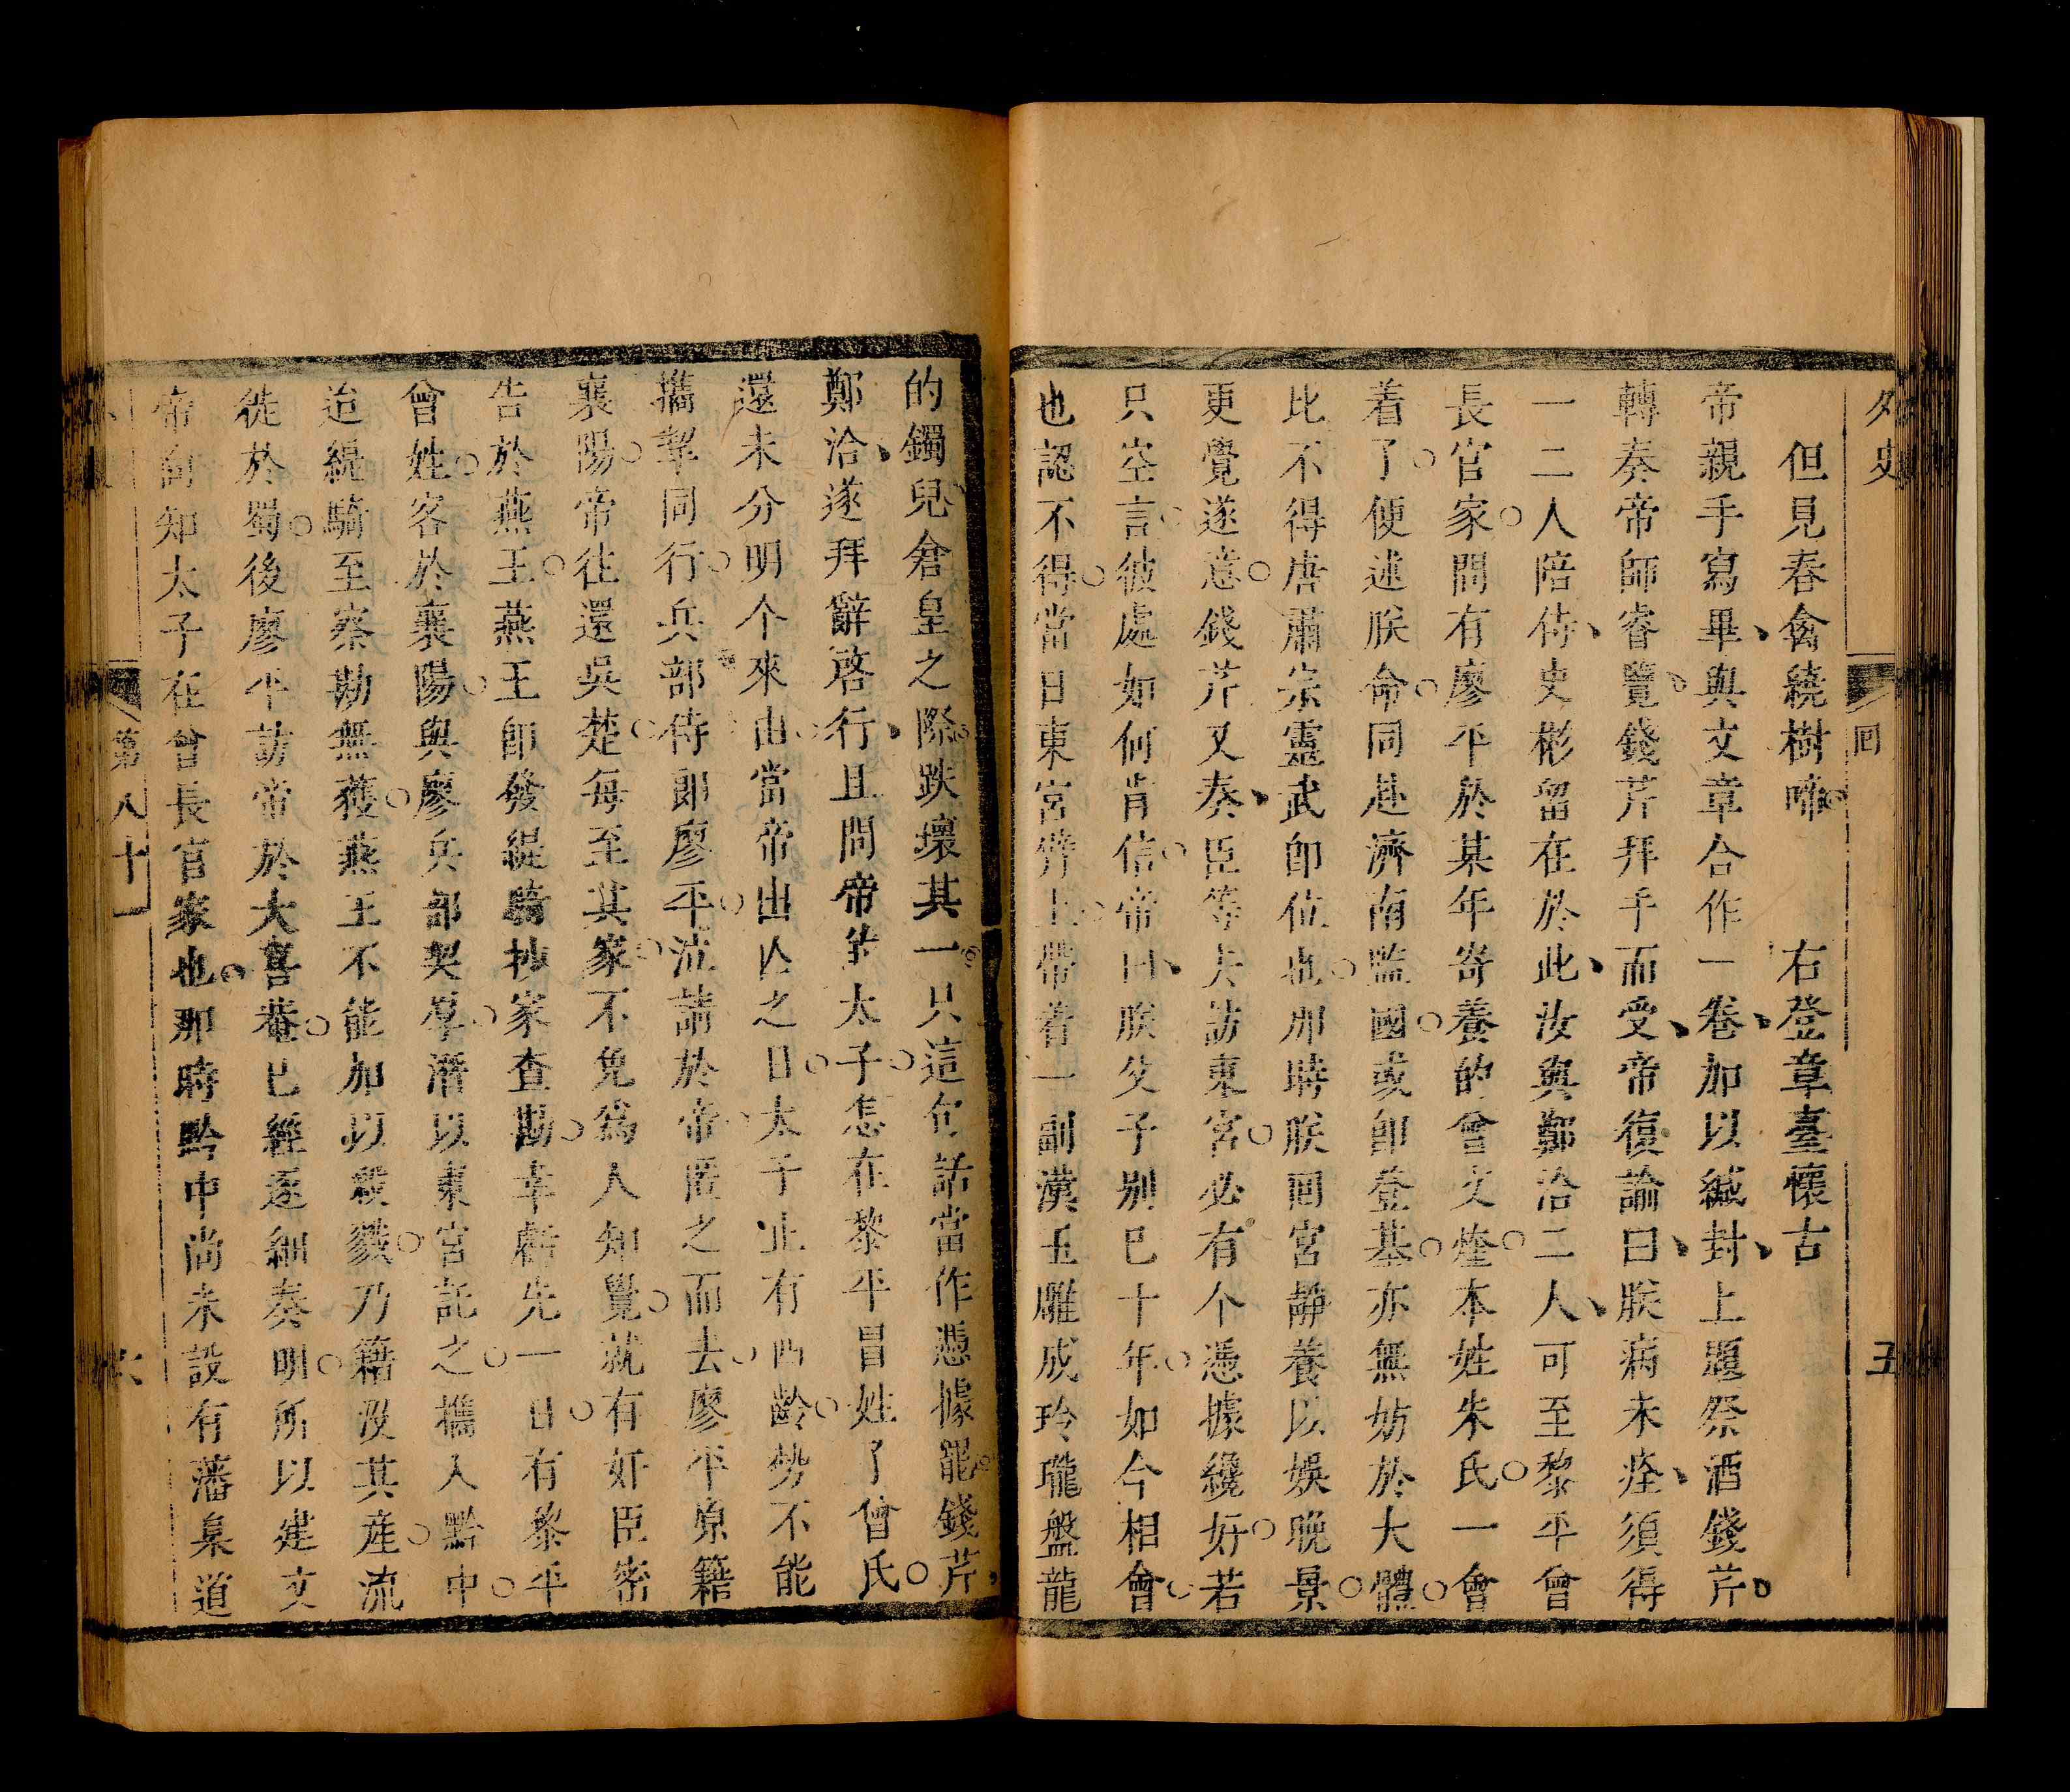 外史
回
五
但見春禽繞樹啼　右登章臺懷古
帝親手寫畢、與文章合作一卷、加以緘封、上題祭酒錢芹。
轉奏帝師睿覽。錢芹拜手而受、帝復諭曰、朕病未痊、須得
一二人陪侍、史彬留在於此、汝與鄭洽二人、可至黎平曾
長官家○問有廖平於某年寄養的曾文烇○本姓朱氏○一會
着了○便述朕命○同赴濟南監國○或卽登基○亦無妨於大體○
比不得唐肅宗靈武卽位也○那時朕回宮靜養以娛晚景○
更覺遂意○錢芹又奏、臣等去訪東宮○必有个憑據纔好○若
只空言○彼處如何肯信○帝曰、朕父子別巳十年○如今相會○
也認不得○當日東宮臂上○帶着一副漢玉雕成玲瓏盤龍
的鐲兒○倉皇之際○跌壞其一○只這句話當作憑據罷○錢芹、
鄭洽、遂拜辭啓行、且問帝的太子○怎在黎平冒姓了曾氏○
還未分明个來由○當帝出亡之日○太子止有四齡○勢不能
攜挈同行○兵部侍郞廖平○泣請於帝○匿之而去○廖平原籍
襄陽○帝往還吳楚○每至其家○不免爲人知覺○就有奸臣密
告於燕王○燕王卽發緹騎抄家查勘○幸虧先一日○有黎平
曾姓○客於襄陽○與廖兵部契厚○潛以東宮託之○攜入黔中○
迨緹騎至察勘無獲○燕王不能加以殺戮○乃籍沒其產○流
徙於蜀○後廖平訪帝於大喜菴○巳經逐細奏明○所以建文
帝向知太子在曾長官家也○那時黔中尚未設有藩臬道
第八十一
六